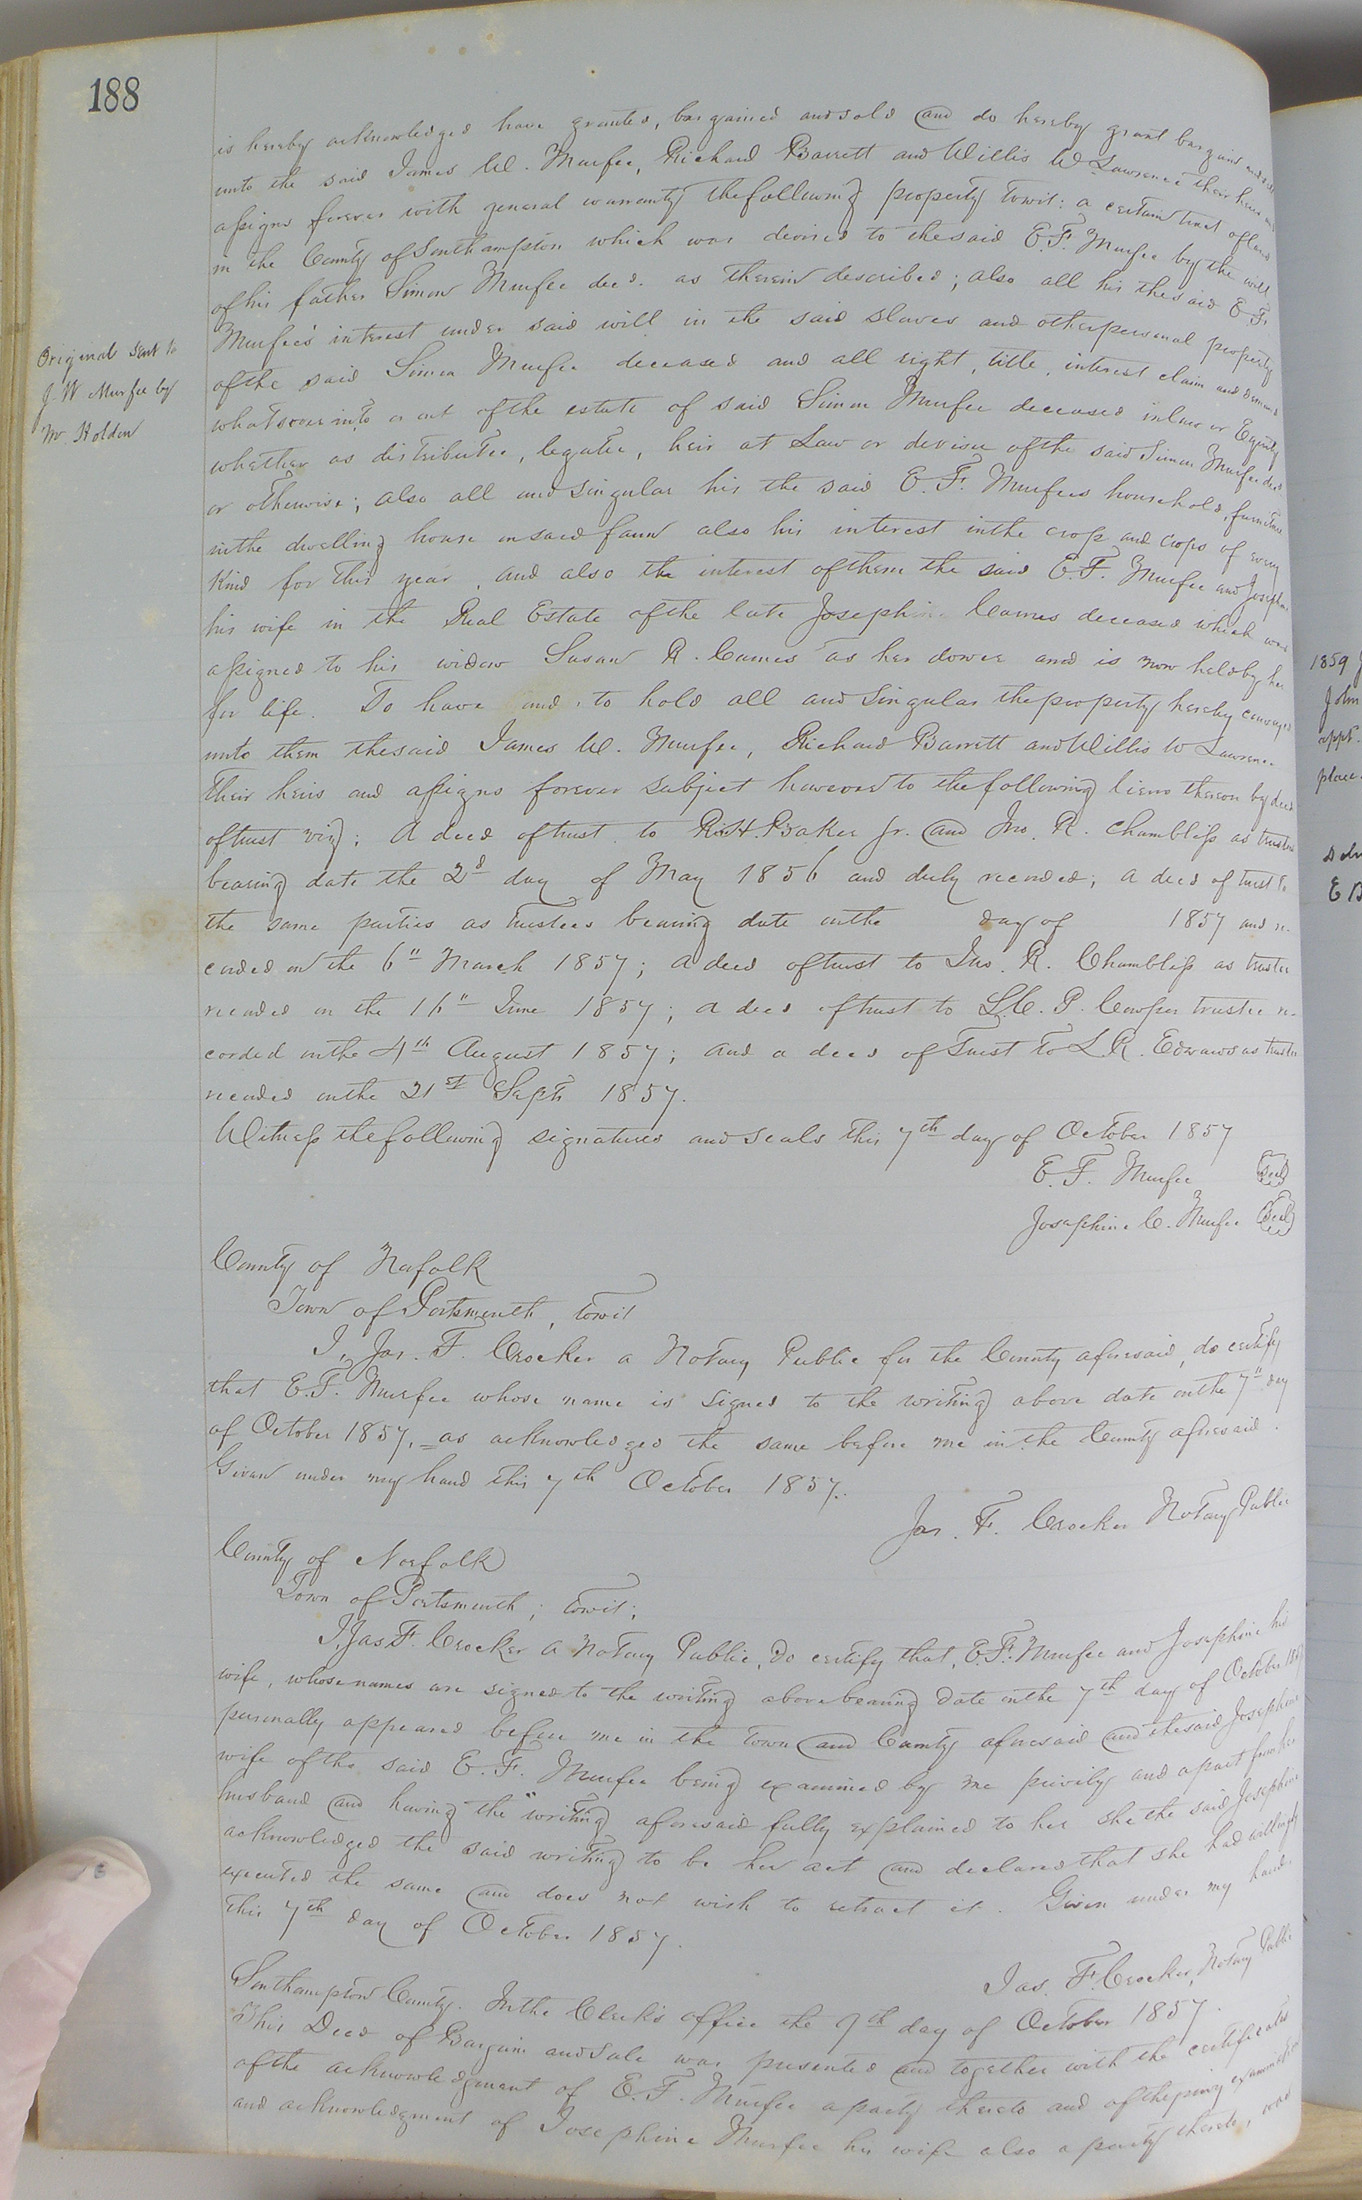 188
is hereby acknowledged have granted, bargained and sold and do hereby grant bargain and sell
unto the said James W. Murfee, Richard Barrett and Willis W Lawrence their heirs and
assigns forever with general warranty the following property towit: a certain tract of land
in the County of Southampton which was devised to the said E. F. Murfee by the will
of his father Simon Murfee decd. as therein described; also all his the said E. F.
Murfee's interest under said will in the said slaves and other personal property
of the said Simon Murfee deceased and all right, title, interest claim and demand
whatsoever into or out of the estate of said Simon Murfee deceased in law or Equity
whether as distributee, legatee, heir at Law or devisee of the said Simon Murfee decd.
or otherwise; also all and singular his the said E. F. Murfees household furniture
in the dwelling house on said farm also his interest in the crop and crops of every
kind for this year, and also the interest of them the said E. F. Murfee and Josephine
his wife in the Real Estate of the late Joseph Carnes deceased which was
assigned to his widow Susan R. Carnes as her dower and is now held by her
for life. To have and to hold all and singular the property hereby conveyed
unto them the said James W. Murfee, Richard Barrett and Willis W Lawrence
their heirs and assigns forever subject however to the following liens thereon by deed
of trust viz; A deed of trust to R. H. Baker Jr. and Jno. R. Chambliss as trustees
bearing date the 2d day of May 1856 and duly recorded; a deed of trust to
the same parties as trustees bearing date on the day of 1857 and re-
corded on the 6" March 1857; a deed of trust to Jno. R. Chambliss as trustee
recorded on the 16" June 1857; a deed of trust to L. C. P. Cowper trustee re-
corded on the 4th August 1857; and a deed of Trust to L. R. Edwards as trustee
recorded on the 21st Sept 1857.
Witness the following signatures and seals this 7th day of October 1857
E. F. Murfee Seal
Josephine C. Murfee Seal
County of Norfolk
Town of Portsmouth, towit
I, Jas. F. Crocker a Notary Public for the County aforesaid, do certify
that E. F. Murfee whose name is signed to the writing above date on the 7" day
of October 1857, as acknowledged the same before me in the County aforesaid.
Given under my hand this 7th October 1857.
Jas. F. Crocker Notary Public
County of Norfolk
Town of Portsmouth; towit;
I, Jas F. Crocker a Notary Public, do certify that, E. F. Murfee and Josephine his
wife, whose names are signed to the writing above bearing date on the 7th day of October 1857
personally appeared before me in the Town and County aforesaid and the said Josephine
wife of the said E. F. Murfee being examined by me privily and apart from her
husband and having the writing aforesaid fully explained to her she the said Josephine
acknowledged the said writing to be her act and declared that she had willingly
executed the same and does not wish to retract it. Given under my hand,
this 7th day of October 1857.
Jas. F. Crocker, Notary Public
Southampton County. In the Clerk's office the 9th day of October 1857.
This Deed of Bargain and Sale was presented and together with the certificates
of the acknowledgment of E. F. Murfee a party thereto and of the privy examination
and acknowledgment of Josephine Murfee his wife also a party thereto, was
Original sent to
J. W Murfee by
Mr. Holden
1859 J
John
appt.
place.
E B